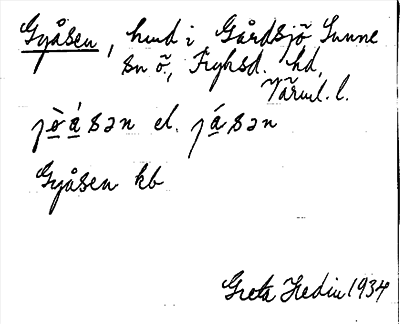 Gyåsen, hmd i Gårdsjö Sunne
sn ö., Fryksd. hd,
Värml. l.
jò̱á̱sən el. já̱sən
Gyåsen kb
Greta Hedin 1934